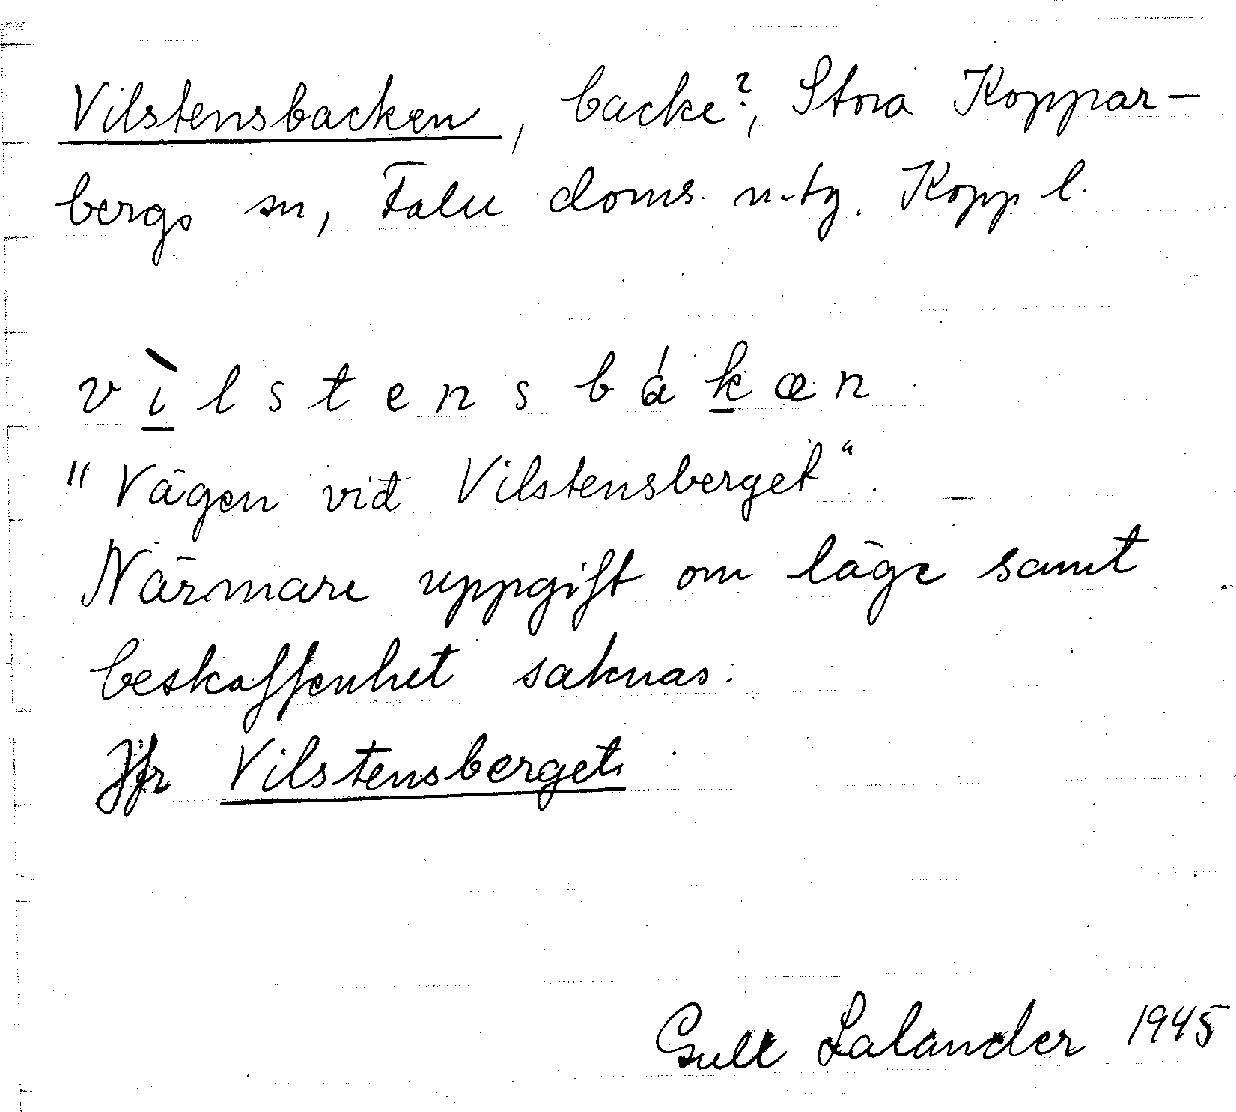 Vilstensbacken, backe?, Stora Koppar-
bergs sn, Falu doms. n. tg. Kopp l.
vìlstensbákæn
"Vägen vid Vilstensberget".
Närmare uppgift om läge samt
beskaffenhet saknas.
Jfr Vilstensberget.
Lalander 1945